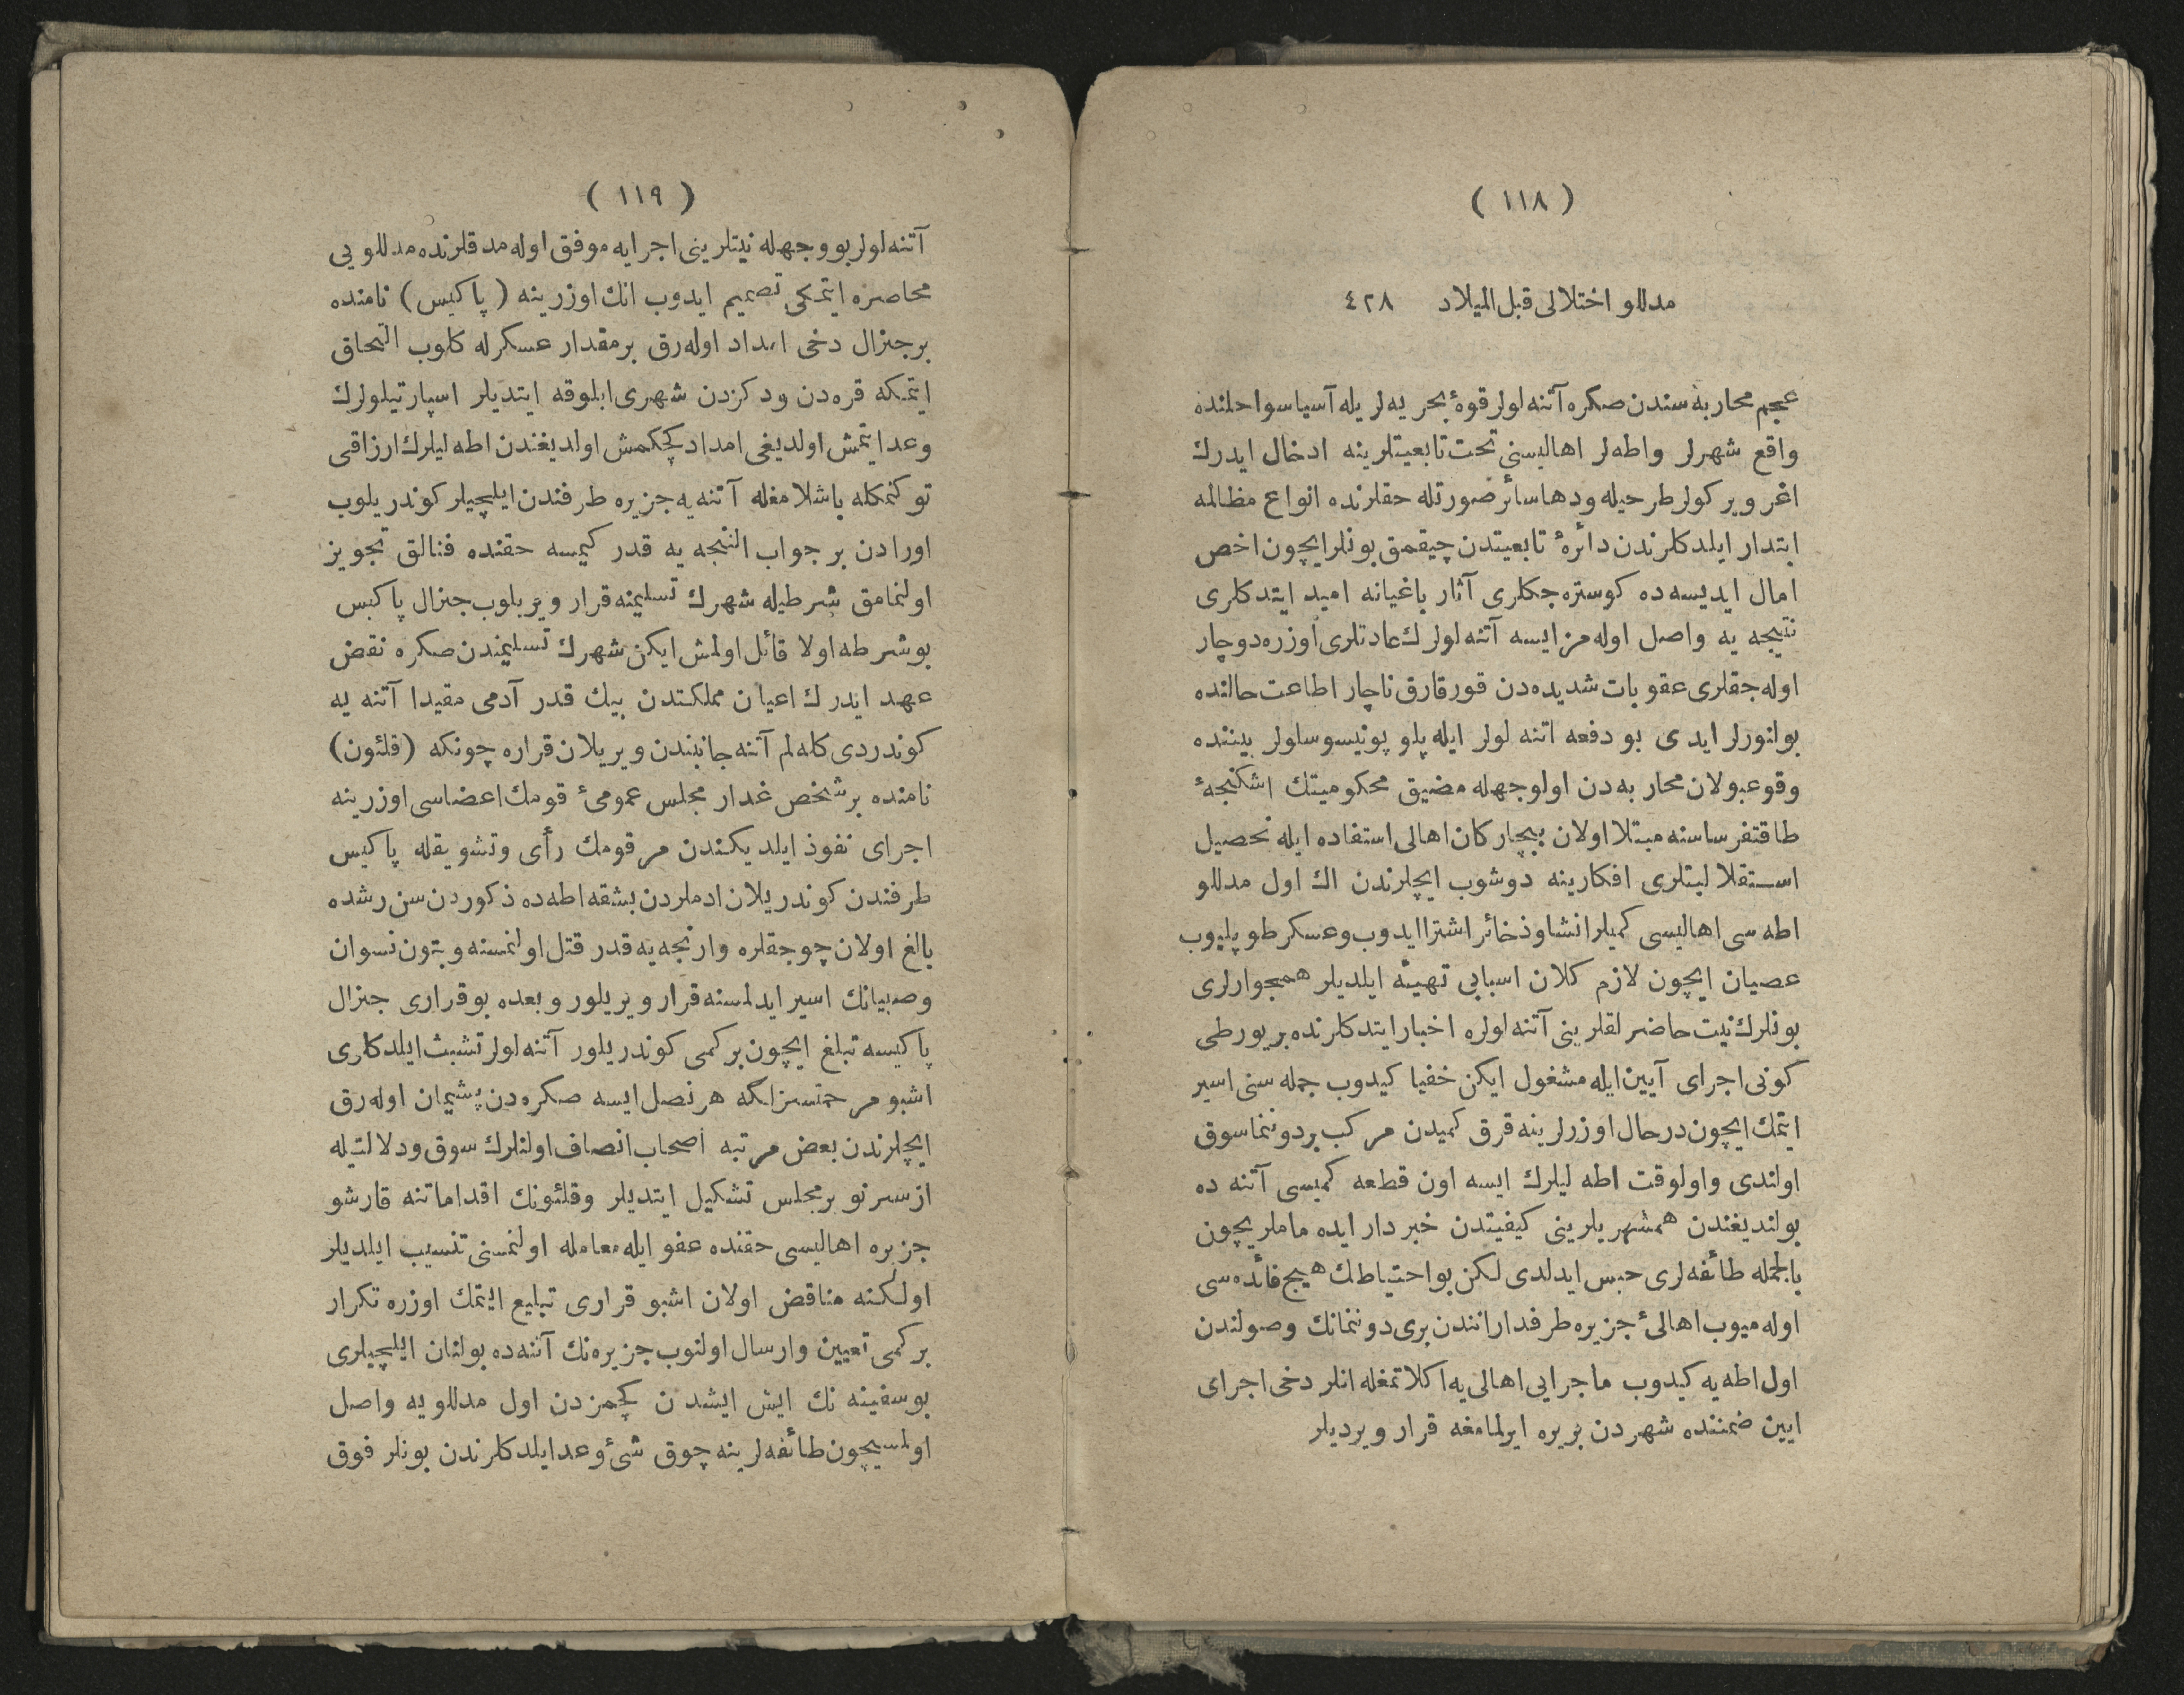 ( ١١٨ )
مدللو اختلالی قبل المیلاد ٤٢٨
عجم محاربه سندن صكره آتنه لولر قوهٔ بحریه لریله آسیا سواحلنده
واقع شهرلر واطه لر اهالیسنی تحت تابعیتلرینه ادخال ایدرك
اغر ویركولر طرحیله ودها سائر صورتله حقلرنده انواع مظالمه
ابتدار ایلدكلرندن دائرهٔ تابعیتدن چیقمق بونلر ایچون اخص
امال ایدیسه ده كوستره جكلری آثار باغیانه امید ایتدكلری
نتیجه یه واصل اوله مز ایسه آتنه لولرك عادتلری اوزره دوچار
اوله جقلری عقوبات شدیده دن قورقارق ناچار اطاعت حالنده
بولنورلر ایدی بو دفعه اتنه لولر ایله پلوپونیسوسلولر بیننده
وقوعبولان محاربه دن اولوجهله مضیق محكومیتك اشكنجهٔ
طاقتفرساسنه مبتلا اولان بیچاركان اهالی استفاده ایله تحصیل
استقلالیتلری افكارینه دوشوب ایچلرندن اك اول مدللو
اطه سی اهالیسی كمیلر انشا وذخائر اشترا ایدوب وعسكر طوپلیوب
عصیان ایچون لازم كلان اسبابی تهیئه ایلدیلر همجوارلری
بونلرك نیت حاضرلقلرینی آتنه لولره اخبار ایتدكلرنده بریورطی
كونی اجرای آیین ایله مشغول ایكن خفیا كیدوب جمله سنی اسیر
ایتمك ایچون درحال اوزرلرینه قرق كمیدن مركب بردوننما سوق
اولندی واولوقت اطه لیلرك ایسه اون قطعه كمیسی آتنه ده
بولندیغندن همشهریلرینی كیفیتدن خبردار ایده ماملریچون
بالجمله طائفه لری حبس ایدلدی لكن بواحتیاطك هیچ فائده سی
اوله میوب اهالئ جزیره طرفدارانندن بری دوننمانك وصولندن
اول اطه یه كیدوب ماجرایی اهالی یه اكلاتمغله انلر دخی اجرای
ایین ضمننده شهردن بریره ایرلمامغه قرار ویردیلر
( ١١٩ )
آتنه لولر بووجهله نیتلرینی اجرایه موفق اوله مدقلرنده مدللویی
محاصره ایتمكی تصمیم ایدوب انك اوزرینه (پاكیس) نامنده
برجنرال دخی امداد اوله رق برمقدار عسكرله كلوب التحاق
ایتمكه قره دن ودكزدن شهری ابلوقه ایتدیلر اسپارتیلولرك
وعد ایتمش اولدیغی امداد كچكمش اولدیغندن اطه لیلرك ارزاقی
توكنمكله باشلامغله آتنه یه جزیره طرفندن ایلچیلر كوندریلوب
اورادن بر جواب النیجه یه قدر كیمسه حقنده فنالق تجویز
اولنمامق شرطیله شهرك تسلیمنه قرار ویریلوب جنرال پاكیس
بوشرطه اولا قائل اولمش ایكن شهرك تسلیمندن صكره نقض
عهد ایدرك اعیان مملكتدن بیك قدر آدمی مقیدا آتنه یه
كوندردی كله لم آتنه جانبندن ویریلان قراره چونكه (قلئون)
نامنده برشخص غدار مجلس عمومئ قومك اعضاسی اوزرینه
اجرای نفوذ ایلدیكندن مرقومك رأی وتشویقله پاكیس
طرفندن كوندریلان ادملردن بشقه اطه ده ذكوردن سن رشده
بالغ اولان چوجقلره وارنجه یه قدر قتل اولنمسنه وبتون نسوان
وصبیانك اسیر ایدلمسنه قرار ویریلور وبعده بوقراری جنرال
پاكیسه تبلغ ایچون بركمی كوندریلور آتنه لولر تشبث ایلدكلری
اشبو مرحمتسزلكه هرنصل ایسه صكره دن پشیمان اوله رق
ایچلرندن بعض مرتبه اصحاب انصاف اولنلرك سوق ودلالتیله
ازسرنو برمجلس تشكیل ایتدیلر وقلئونك اقداماتنه قارشو
جزیره اهالیسی حقنده عفو ایله معامله اولنمسنی تنسیب ایلدیلر
اولكنه مناقض اولان اشبو قراری تبلیغ ایتمك اوزره تكرار
بركمی تعیین وارسال اولنوب جزیره نك آتنه ده بولنان ایلچیلری
بوسفینه نك ایش ایشدن كچمزدن اول مدللویه واصل
اولمسیچون طائفه لرینه چوق شئ وعد ایلدكلرندن بونلر فوق